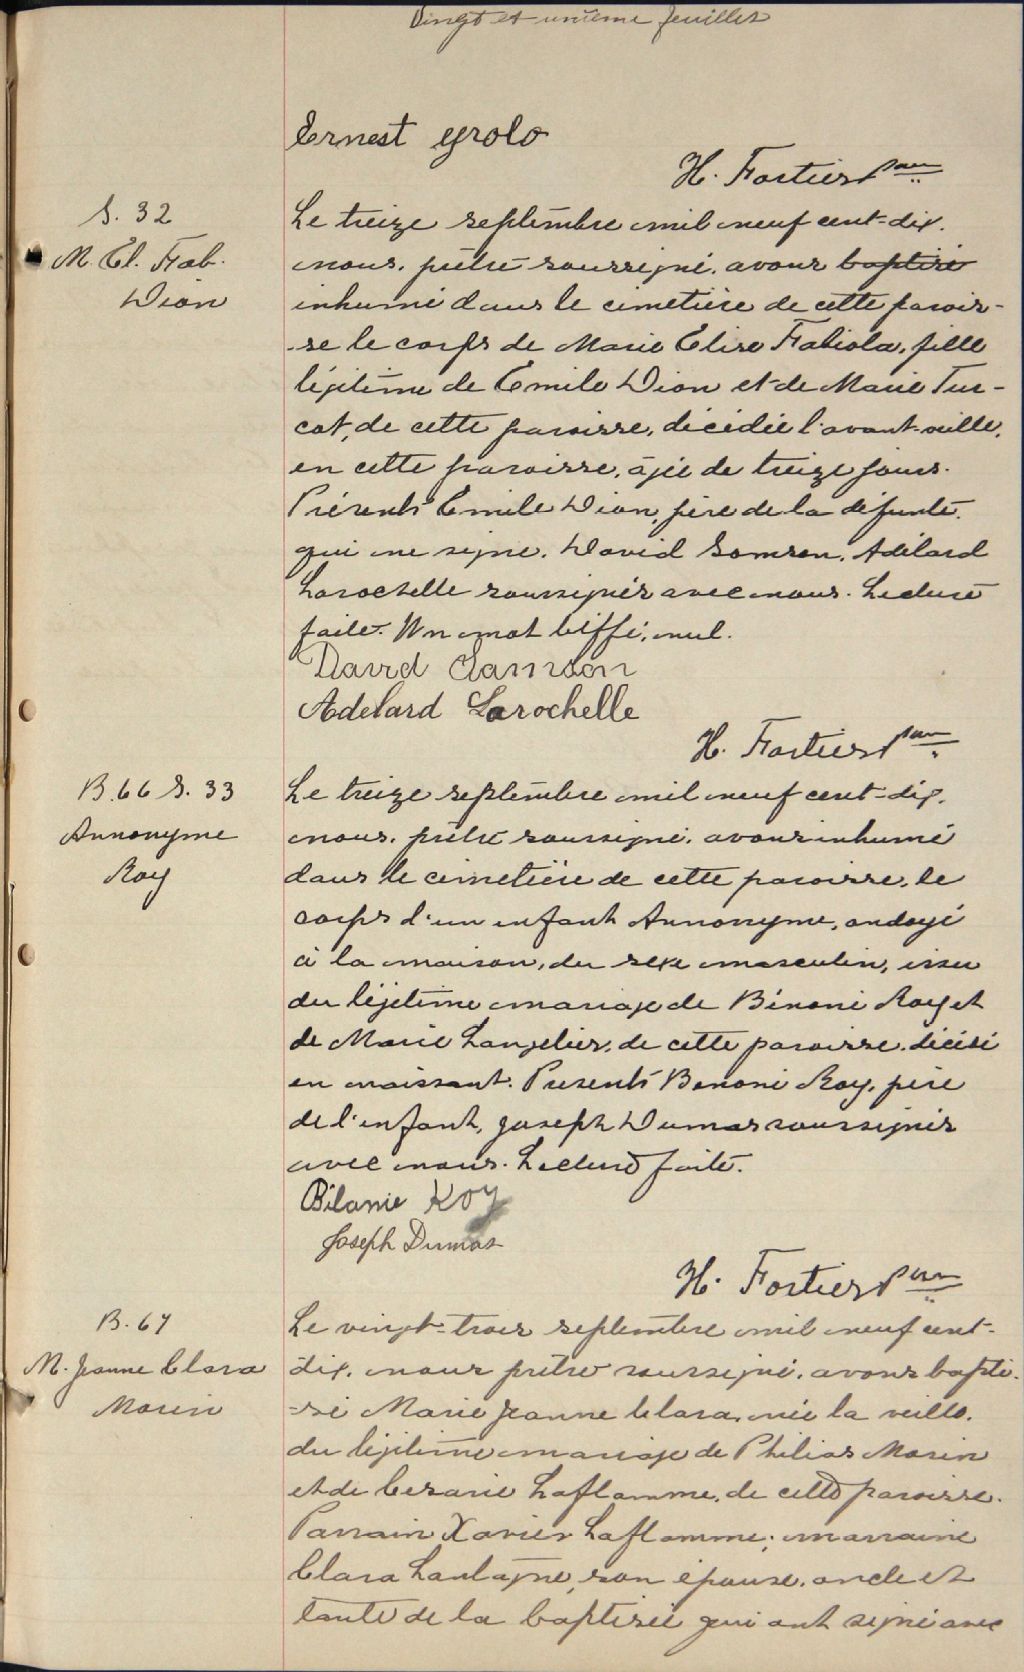 Vingt et unième feuillet
Ernest Grolo
H. Fortier Ptre
S. 32
M. El. Fab.
Dion
Le treize septembre mil neuf cent-dix,
nous, prêtre soussigné, avons baptisé
inhumé dans le cimetière de cette parois-
-se le corps de Marie Elise Fabiola, fille
légitime de Emile Dion et de Marie Tur-
cot, de cette paroisse, décédée l'avant-veille,
en cette paroisse, âgée de treize jours.
Présents Emile Dion, père de la défunte,
qui ne signe, David Samson, Adélard
Larochelle soussignés avec nous. Lecture
faite. Un mot biffé, nul.
David Samson
Adelard Larochelle
H. Fortier Ptre
B. 66 S. 33
Annonyme
Roy
Le treize septembre mil neuf cent-dix,
nous, prêtre soussigné, avons inhumé
dans le cimetière de cette paroisse, le
corps d'un enfant Annonyme, ondoyé
à la maison, du sexe masculin, issu
du légitime mariage de Bénoni Roy et
de Marie Langelier, de cette paroisse, décédé
en naissant. Présents Benoni Roy, père
de l'enfant, Joseph Dumas soussignés
avec nous. Lecture faite.
Bélanie Roy
Joseph Dumas
H. Fortier Ptre
B. 67
M. Jeanne Clara
Morin
Le vingt-trois septembre mil neuf cent-
dix, nous prêtre soussigné, avons bapti-
-sé Marie Jeanne Clara, née la veille,
du légitime mariage de Philias Morin
et de Cesarie Laflamme, de cette paroisse.
Parrain Xavier Laflamme, marraine
Clara Lantagne, son épouse, oncle et
tante de la baptisée qui ont signé avec